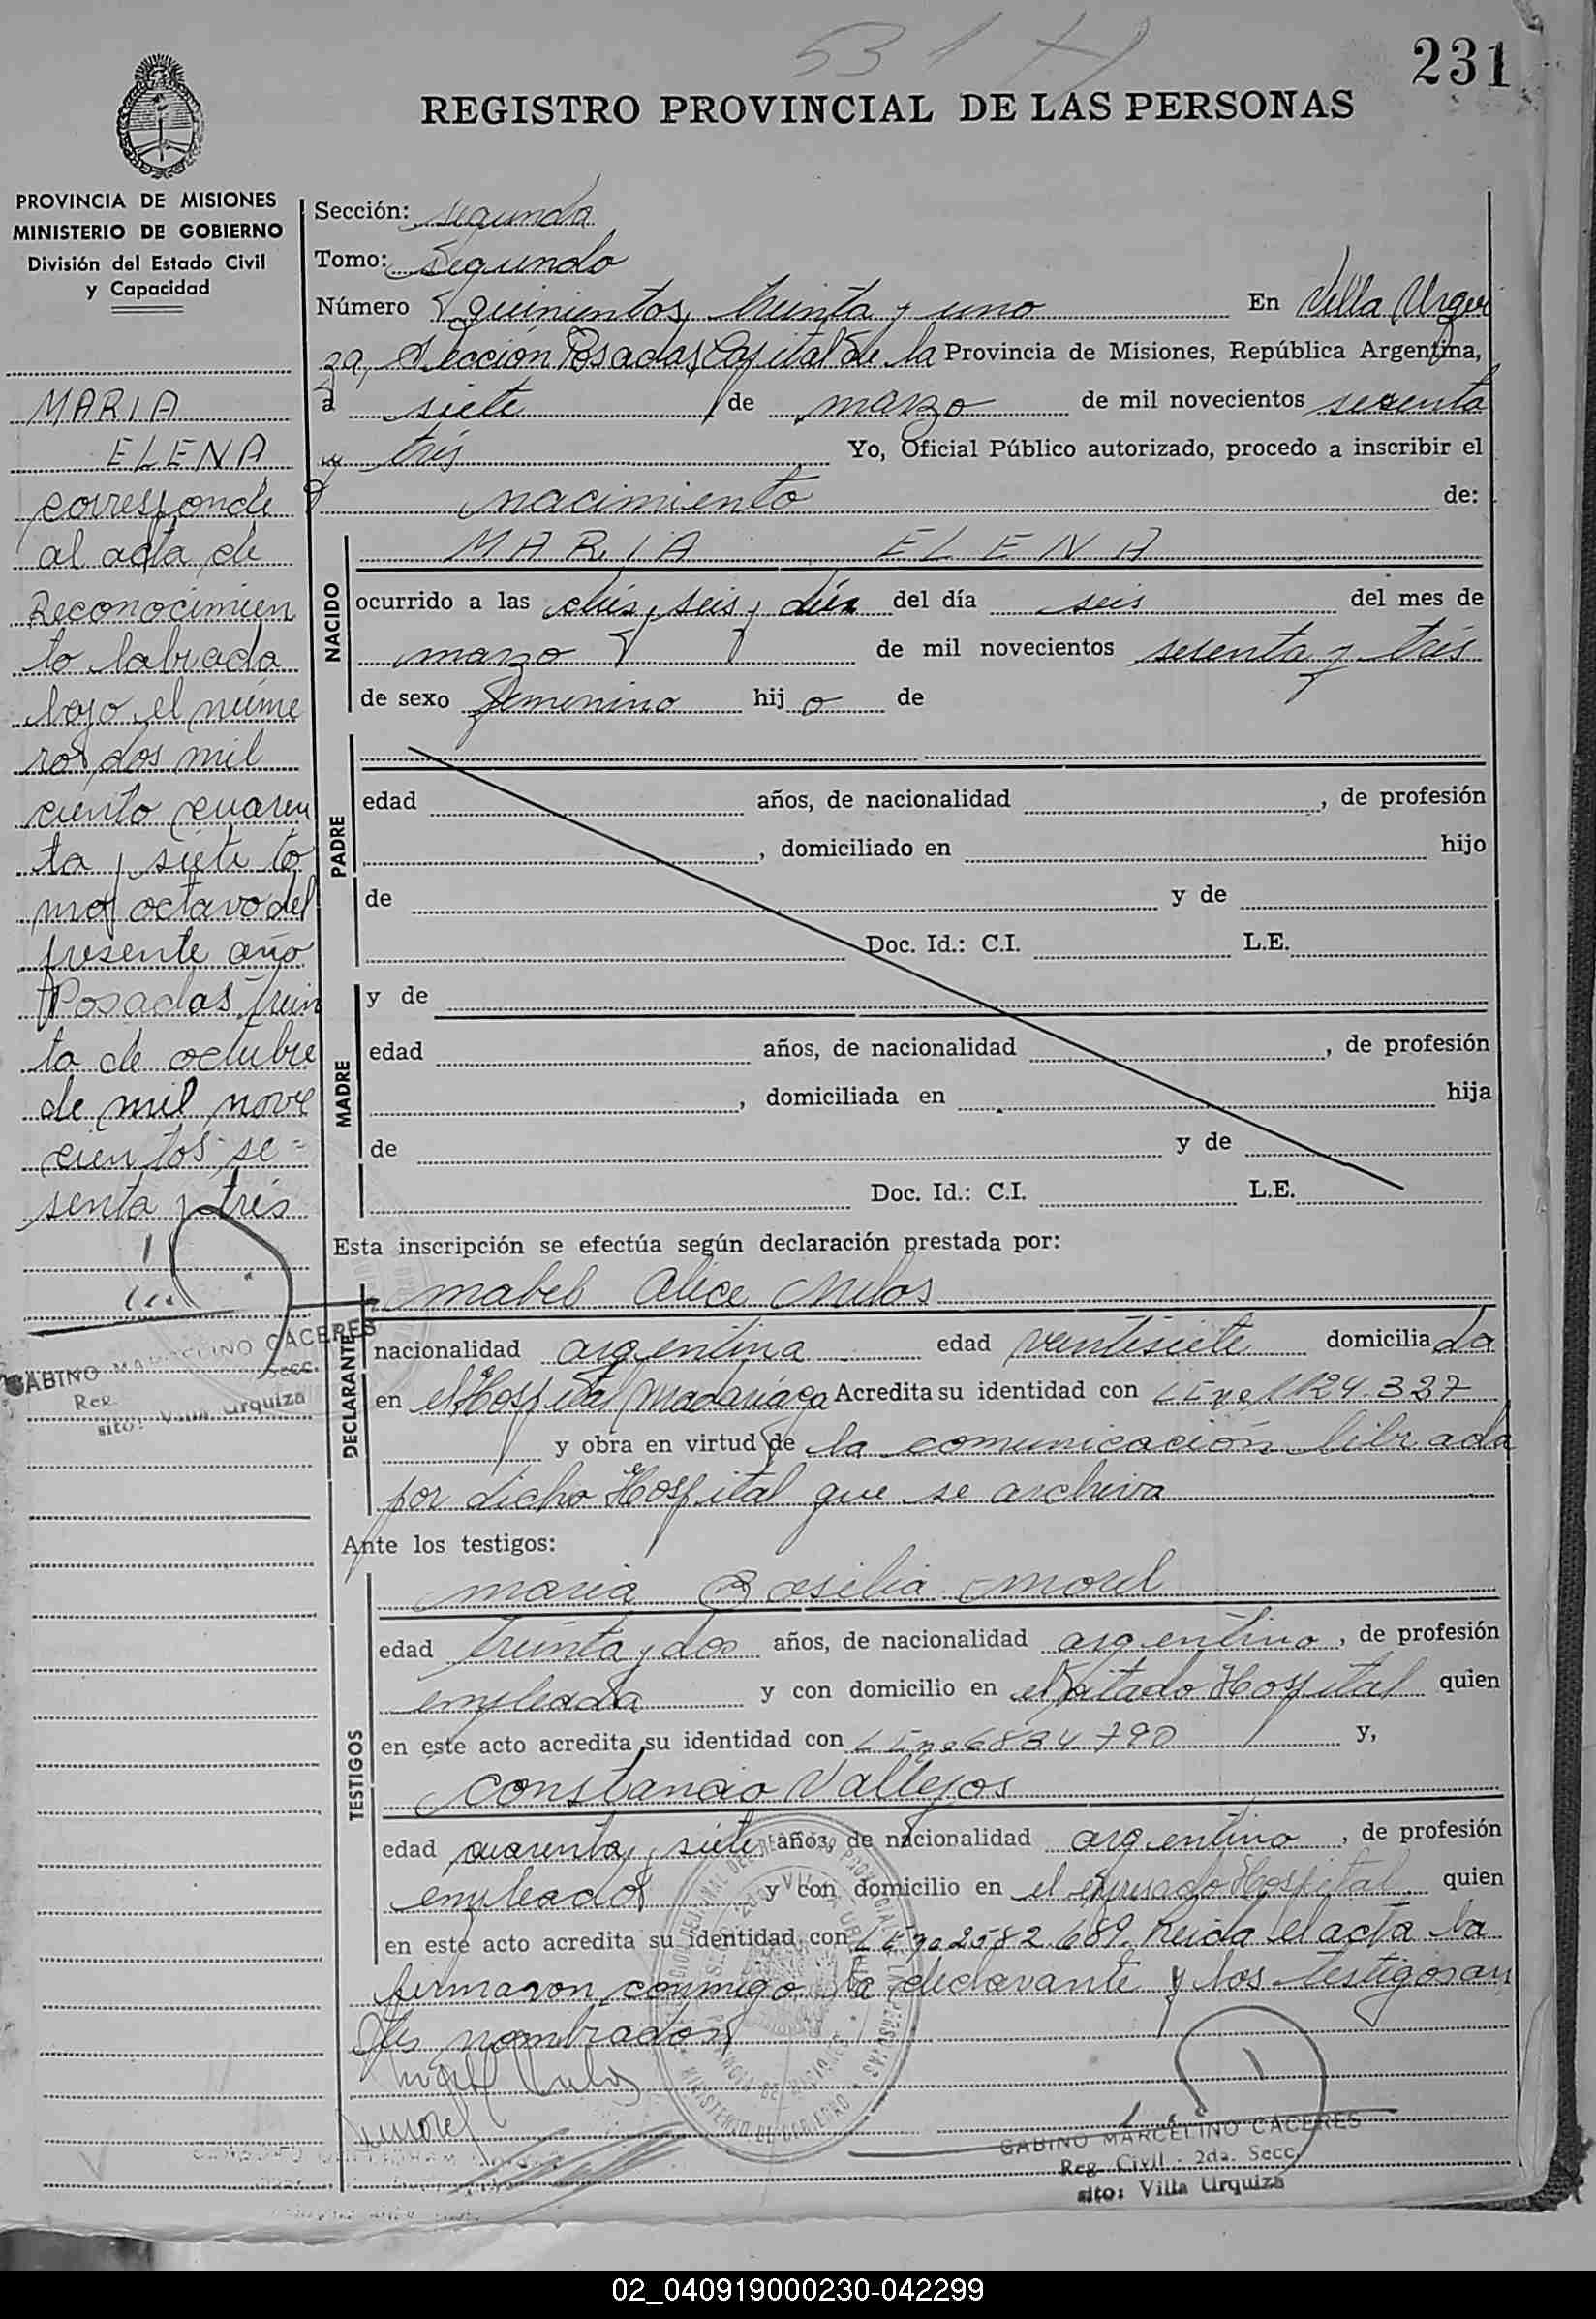 531
231
REGISTRO PROVINCIAL DE LAS PERSONAS
PROVINCIA DE MISIONES
MINISTERIO DE GOBIERNO
División del Estado Civil
y Capacidad
MARIA
ELENA
corresponde
al acta de
Reconocimien
to labrada
bajo el núme
ro dos mil
ciento cuaren
ta y siete to
mo octavo del
presente año
Posadas, trein
ta de octubre
de mil nove
cientos se=
senta y tres
GABINO MARCELINO CACERES
Reg. Secc.
sito: Villa Urquiza
Sección: segunda
Tomo: Segundo
Número quinientos treinta y uno En Villa Urqui
za, Sección Posadas, Capital de la Provincia de Misiones, República Argentina,
a siete de marzo de mil novecientos sesenta
y tres Yo, Oficial Público autorizado, procedo a inscribir el
nacimiento de:
NACIDO
MARIA ELENA
ocurrido a las diez y seis y diez del día seis del mes de
marzo de mil novecientos sesenta y tres
de sexo femenino hijo de
PADRE
edad años, de nacionalidad , de profesión
, domiciliado en hijo
de y de
Doc. Id.: C.I. L.E.
MADRE
y de
edad años, de nacionalidad , de profesión
, domiciliada en hija
de y de
Doc. Id.: C.I. L.E.
Esta inscripción se efectúa según declaración prestada por:
DECLARANTE
Mabel Alice
nacionalidad argentina edad veintisiete domiciliada
en el Hospital Madariaga Acredita su identidad con
y obra en virtud de la comunicación librada
por dicho Hospital que se archiva
Ante los testigos:
TESTIGOS
Maria Basilia Morel
edad treinta y dos años, de nacionalidad argentina, de profesión
empleada y con domicilio en el citado Hospital quien
en este acto acredita su identidad con 6834790 y,
Constancio Vallejos
edad cuarenta y siete años, de nacionalidad argentino, de profesión
empleado y con domicilio en el expresado Hospital quien
en este acto acredita su identidad con 2582.689. Leida el acta la
firmaron conmigo la declarante y los testigos an
tes nombrados
GABINO MARCELINO CACERES
Reg. Civil - 2da. Secc.
sito: Villa Urquiza
02_040919000230-042299